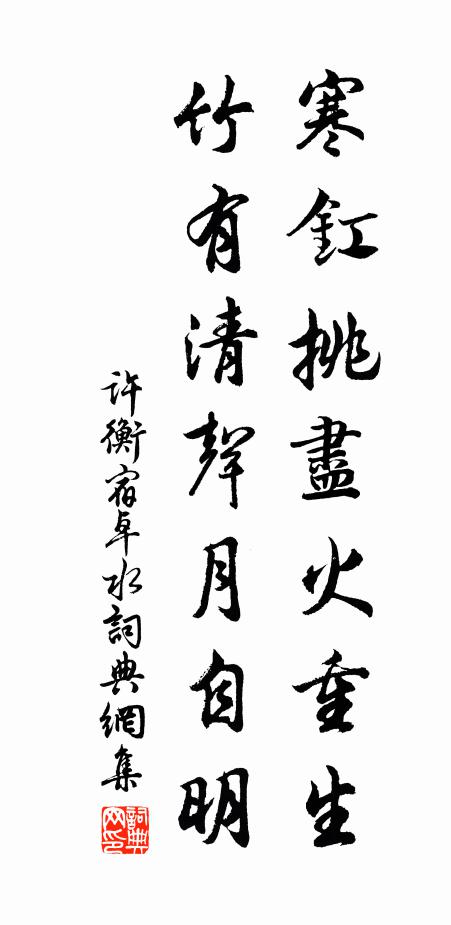 寒釭挑盡火重生
竹有清聲月自明
許衡宿卓水詞典網集
詞典网印